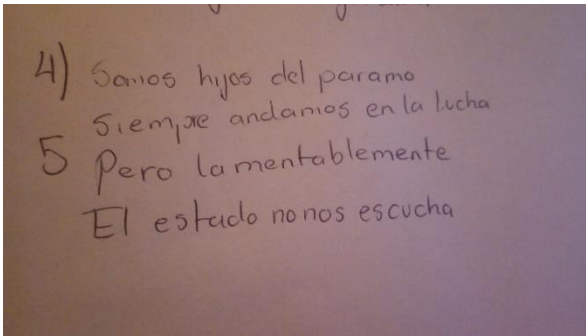 4) Somos hijos del paramo
Siempre andamos en la lucha
5 Pero lamentablemente
El estado no nos escucha